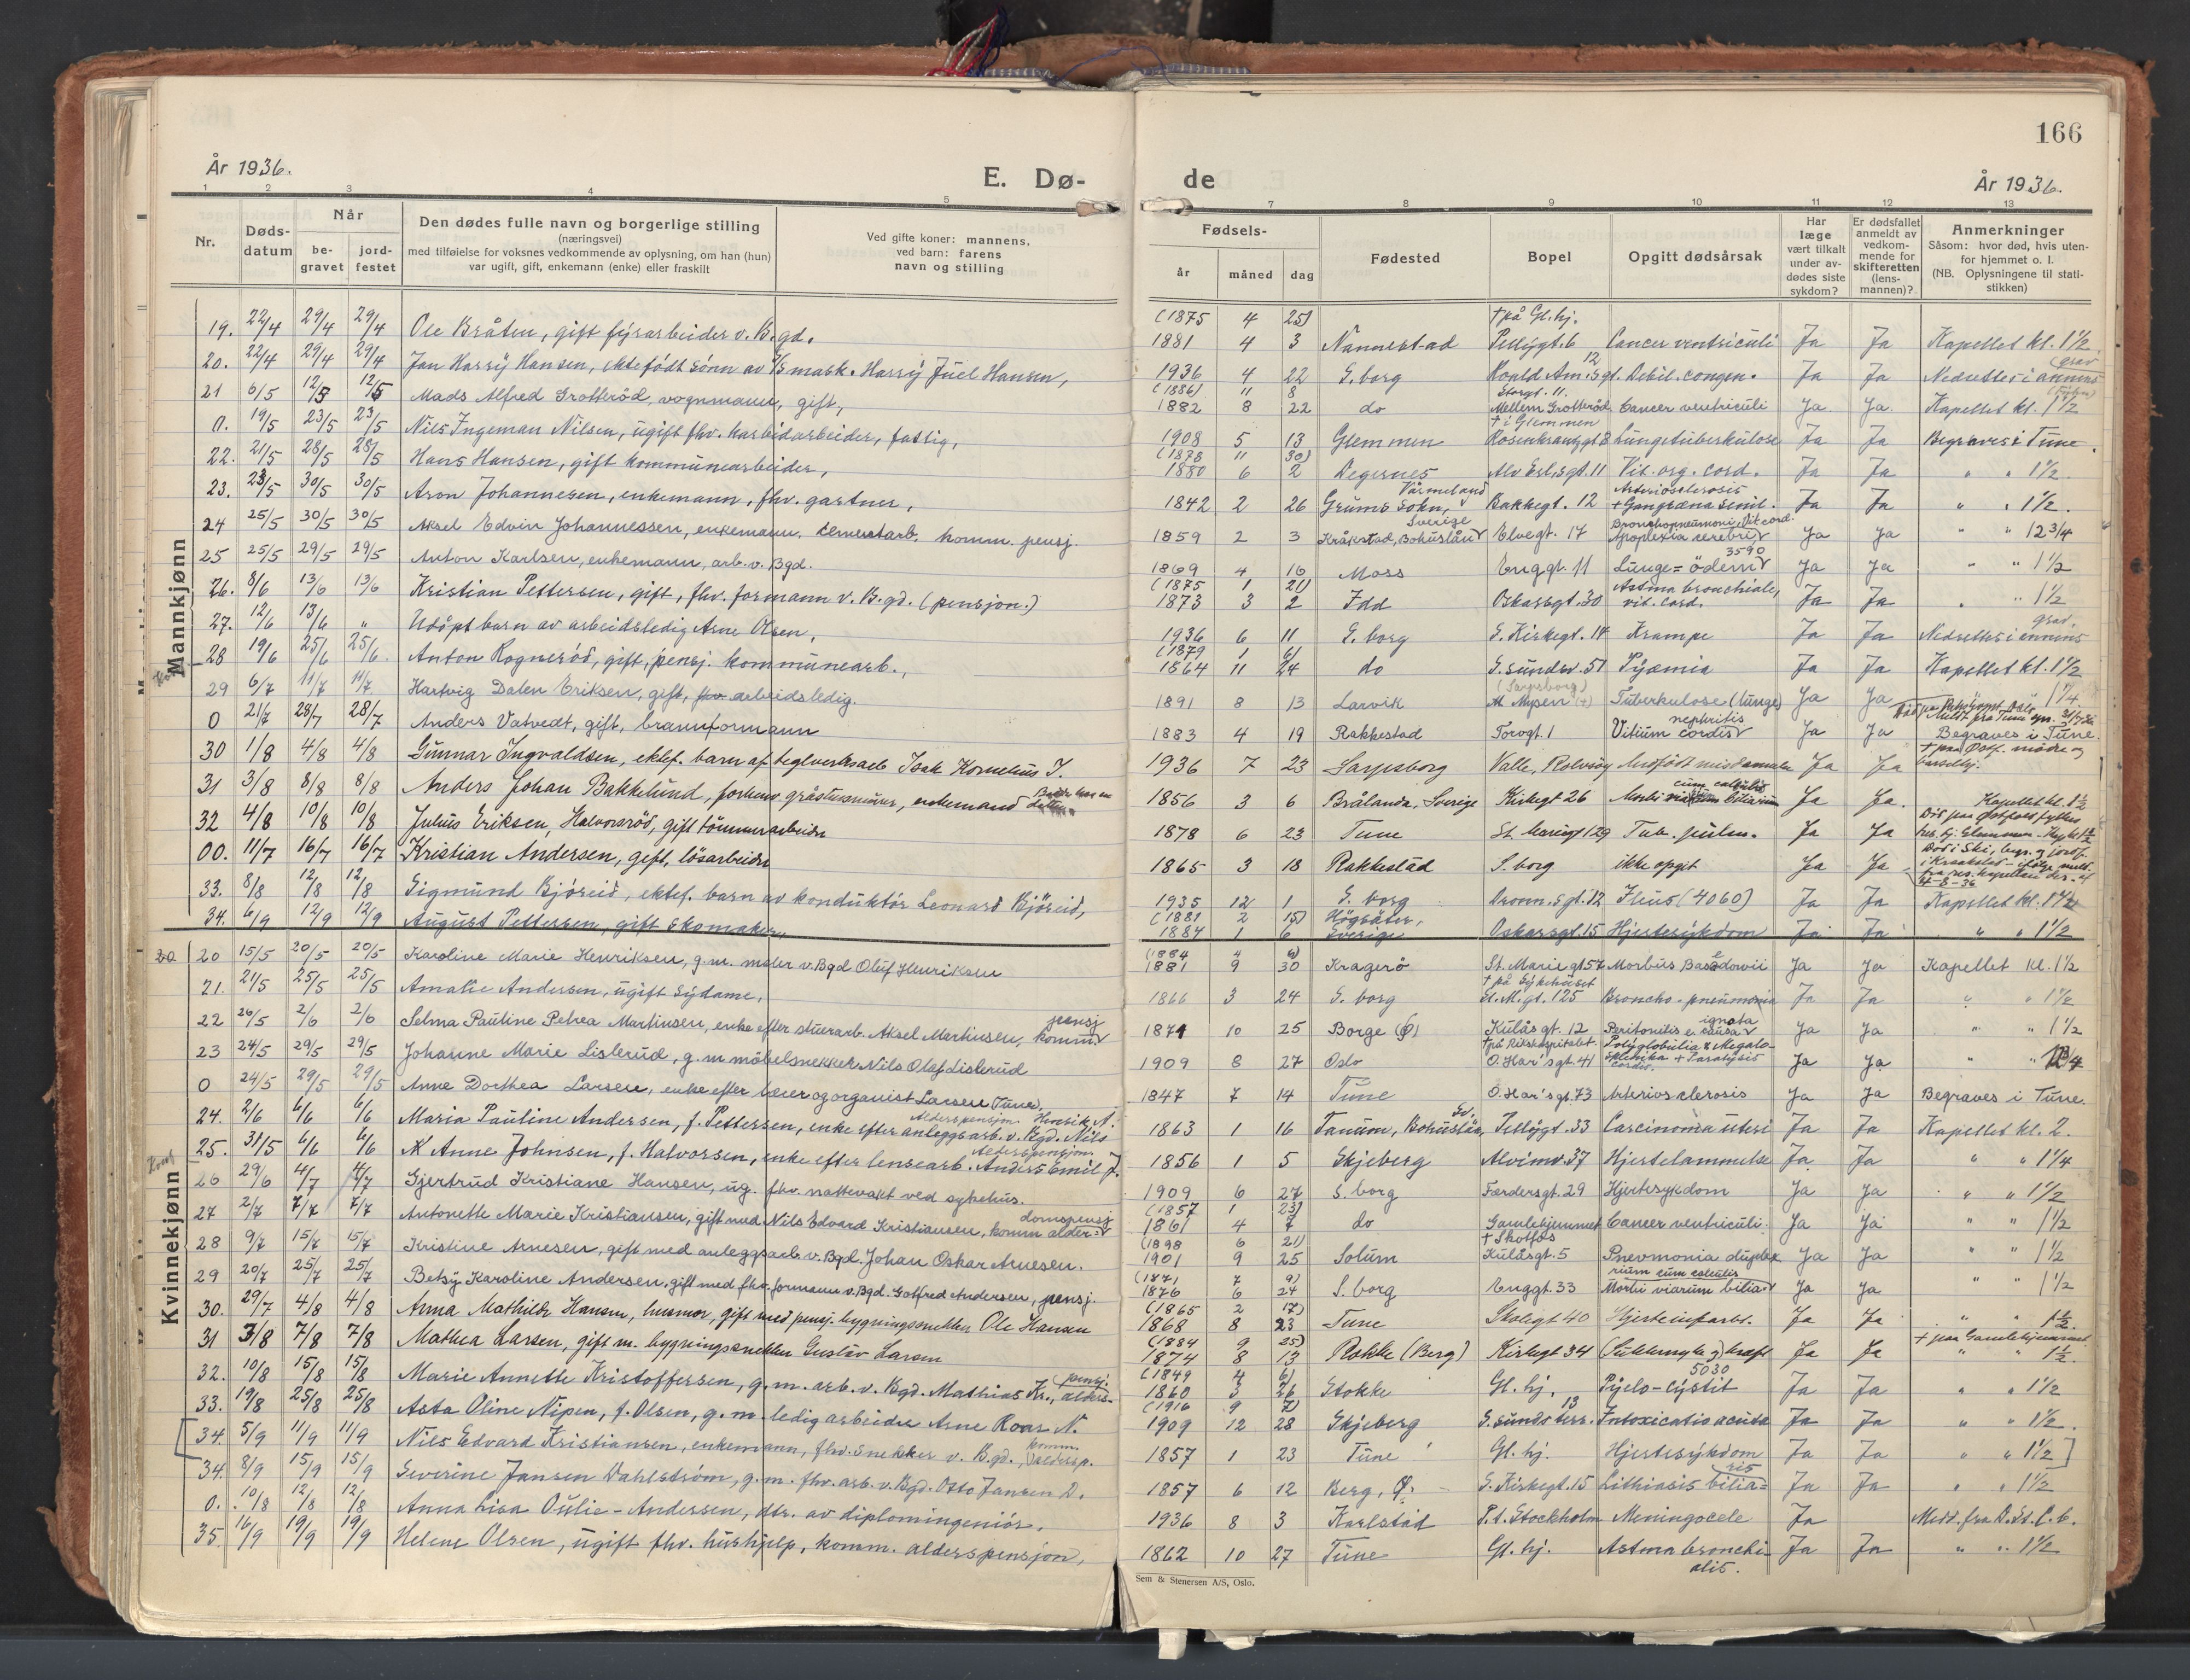 166
År 1936.
E. Dø-
de
År 1936.
1 2 3 4 5 7 8 9 10 11 12 13
Nr.
Døds-
datum
Når
be-
gravet
jord-
festet
Den dødes fulle navn og borgerlige stilling
(næringsvei)
med tilføielse for voksnes vedkommende av oplysning, om han (hun)
var ugift, gift, enkemann (enke) eller fraskilt
Ved gifte koner: mannens,
ved barn: farens
navn og stilling
Fødsels-
år måned dag
Fødested
Bopel
Opgitt dødsårsak
Har
læge
vært tilkalt
under av-
dødes siste
sykdom?
Er dødsfallet
anmeldt av
vedkom-
mende for
skifteretten
(lens-
mannen)?
Anmerkninger
Såsom: hvor død, hvis uten-
for hjemmet o. l.
(NB. Oplysningene til stati-
stikken)
Mannkjønn
(1875 4 25) † på Gl.hj.
19. 22/4 29/4 29/4 Ole Bråten, gift fyrarbeider v. B.gd. 1881 4 3 Nannestad Pellygt. 6 Cancer ventriculi Ja Ja Kapellet kl. 1½
20. 22/4 29/4 29/4 Jan Harry Hansen, ektefødt sønn av mask. Harry Juel Hansen, 1936 4 22 S.borg Roald Am.sgt. 12 Debil. congen. Ja Ja Nedsettes i annens grav
(1886) 11 8 Storgt. 11.
21 6/5 12/5 12/5 Mads Alfred Grotterød, vognmann, gift, 1882 8 22 do Mellem Grotterød Cancer ventriculi Ja Ja Kapellet kl. 1½
† i Glemmen
0. 19/5 23/5 23/5 Nils Ingeman Nilsen, ugift fhv. karbidarbeider, fattig, 1908 5 13 Glemmen Rosenkrantzgt 8 Lungetuberkulose Ja Ja Begraves i Tune
(1878 11 30)
22. 21/5 28/5 28/5 Hans Hansen, gift kommunearbeider, 1880 6 2 Degernes Alv Erl.sgt. 11 Vit. org. cord. Ja Ja " " 1½
23. 23/5 30/5 30/5 Aron Johannesen, enkemann, fhv. gartner, 1842 2 26 Grums sokn, Värmeland Sverige Bakkegt. 12 Arteriosclerosis + Gangræna senil. Ja Ja " " 1½
24 25/5 30/5 30/5 Aksel Edvin Johannessen, enkemann, cementarb. komm. pensj. 1859 2 3 Kråkstad, Bohuslän Elvegt. 17 Bronchopneumoni, Vit cord. Apoplexia cerebri Ja Ja " " 12 3/4
25 25/5 29/5 29/5 Anton Karlsen, enkemann, arb. v. Bgd. 1869 4 16 Moss Enggt. 11 Lunge=ödem 3590 Ja Ja " " 1½
(1875 1 21)
26. 8/6 13/6 13/6 Kristian Pettersen, gift, fhv. formann v. B.gd. (pensjon.) 1873 3 2 Idd Oskarsgt. 30 Astma bronchiale, vit. cord. Ja Ja " " 1½
27. 12/6 13/6 " Udøpt barn av arbeidsledig Arne Olsen, 1936 6 11 S.borg S. Kirkegt. 14 Krampe Ja Ja Nedsettes i annens grav.
(1879 1 6)
28 19/6 25/6 25/6 Anton Rognerød, gift, pensj. kommunearb., 1864 11 24 do S.sundsv. 51 Pyæmia Ja Ja Kapellet kl. 1½
29 6/7 11/7 11/7 Hartvig Dalen Eriksen, gift, fhv arbeidsledig. 1891 8 13 Larvik (Sarpsborg) M. Mysen Tuberkulose (lunge) Ja Ja 1¼
0 21/7 28/7 28/7 Anders Vatvedt, gift, brannformann 1883 4 19 Rakkestad Torvgt. 1 nephritis Vitium cordis Ja Ja Begraves i Tune
30 1/8 4/8 4/8 Gunnar Ingvaldsen, ektef. barn af teglverksarb Isak Kornelius I. 1936 7 23 Sarpsborg Valle, Rolvsøy Medfødt misdannelse Ja Ja
31 3/8 8/8 8/8 Anders Johan Bakkelund, forhenv. gråstensmurer, enkemand 1856 3 6 Brålanda, Sverige Kirkegt 26 cum calculis Morbi viarum biliarium Ja Ja Kapellet kl. 1½
32 4/8 10/8 10/8 Julius Eriksen, Halvorsrød, gift tømmerarbeider 1878 6 23 Tune St. Mariegt 129 Tub. pulm. Ja Ja Død paa Østfold fylkes
00. 11/7 16/7 16/7 Kristian Andersen, gift, løsarbeider 1865 3 13 Rakkestad S.borg ikke opgit Ja Ja Død i Ski, begr. og jordf. i Kraakstad
33. 8/8 12/8 12/8 Sigmund Bjøreid, ektef. barn av konduktør Leonard Bjøreid, 1935 12 1 S.borg Dronn.sgt. 12 Ileus (4060) Ja Ja Kapellet kl. 1½
(1881 2 15)
34. 6/9 12/9 12/9 August Pettersen, gift skomaker, 1884 1 6 Högsäter, Sverige Oskarsgt. 15 Hjertesykdom Ja Ja " " 1½
Kvinnekjønn
(1884 4 4)
20 20 15/5 20/5 20/5 Karoline Marie Henriksen, g.m. maler v. Bgd Oluf Henriksen 1881 9 30 Kragerø St. Marie gt 57 Morbus Basedowii Ja Ja Kapellet kl. 1½
† på Sykehuset
21. 21/5 25/5 25/5 Amalie Andersen, ugift sydame, 1866 3 24 S.borg St. M. gt. 125 Broncho-pneumonia Ja Ja " " 1½
22 26/5 2/6 2/6 Selma Pauline Petrea Martinsen, enke efter stuerarb. Aksel Martinsen, komm. pensj 1871 10 25 Borge (Ø) Kulåsgt. 12 Peritonitis e. causa ignota Ja Ja " " 1½
† på Rikshospitalet
23 24/5 29/5 29/5 Johanne Marie Lislerud, g.m. møbelsnekker Nils Olaf Lislerud 1909 8 27 Oslo O. Har's gt. 41 Polyglobulia & Megalosplenika + Paralysis cordis. Ja Ja
0 24/5 29/5 29/5 Anne Dorthea Larsen, enke efter lærer og organist Larsen (Tune). 1847 7 14 Tune O. Har's gt. 73 Arteriosclerosis Ja Ja Begraves i Tune.
24. 2/6 6/6 6/6 Maria Pauline Andersen, f. Pettersen, enke efter anleggsarb. v. Bgd. Nils Henrik A. Alderspensjon 1863 1 16 Tanum, Bohuslän, Sv. Pellygt. 33 Carcinoma uteri Ja Ja Kapellet kl. 2.
25. 31/5 6/6 6/6 Anne Johnsen, f. Halvorsen, enke efter lensearb. Anders Emil J. Alderspensjon 1856 1 5 Skjeberg Alvimv. 37 Hjertelammelse Ja Ja " " 1¼
26 29/6 4/7 4/7 Gjertrud Kristiane Hansen, ug. fhv. nattevakt ved sykehus. 1909 6 27 S.borg Færdersgt. 29 Hjertesykdom Ja Ja " " 1½
(1857 1 23)
27 2/7 7/7 7/7 Antonette Marie Kristiansen, gift med Nils Edvard Kristiansen, komm alder- 1861 4 7 do Gamlehjemmet Cancer ventriculi. Ja Ja " " 1½
(1898 6 21) † Skotfos
28 9/7 15/7 15/7 Kristine Arnesen, gift med anleggsarb. v. Bgd. Johan Oskar Arnesen. 1901 9 25 Solum Kulåsgt. 5 Pnevmonia duplex Ja Ja " " 1½
(1871 7 9)
29 20/7 25/7 25/7 Betsy Karoline Andersen, gift med fhv. formann v. Bgd. Gotfred Andersen, pensj. 1876 6 24 S.borg Enggt. 33 Morbi viarum biliarium cum calculis Ja Ja " " 1½
(1865 2 17)
30. 29/7 4/8 4/8 Anna Mathilde Hansen, husmor, gift med pensj. bygningssnekker Ole Hansen 1868 8 23 Tune Skolegt 40 Hjerteinfarkt. Ja Ja " " 1½
(1884 9 25) † paa Gamlehjemmet
31 3/8 7/8 7/8 Mathea Larsen, gift m. bygningssnekker Gustav Larsen 1874 8 13 Rokke (Berg) Kirkegt 34 (Sukkersyke og) kræft Ja Ja " " 1½
(1849 4 6)
32. 10/8 15/8 15/8 Marie Annette Kristoffersen, g.m. arb. v. Bgd. Mathias Kr., alders- pensj. 1860 3 26 Stokke Gl. hj. Pyelo-cystit 5030 Ja Ja " " 1½
(1916 9 7)
33. 19/8 25/8 25/8 Asta Oline Nipen, f. Olsen, g.m. ledig arbeider Arne Roar N. 1909 12 28 Skjeberg S.sunds terr. 13 Intoxicatio acuta Ja Ja " " 1½
[34. 5/9 11/9 11/9 Nils Edvard Kristiansen, enkemann, fhv. snekker v. B.gd., komm. aldersp. 1857 1 23 Tune Gl. hj. Hjertesykdom Ja Ja " " 1½]
34. 8/9 15/9 15/9 Severine Jansen Dahlstrøm, g.m. fhv. arb. v. Bgd. Otto Jansen D. 1857 6 12 Berg, Ø. S. Kirkegt. 15 Lithiasis bilia=ris Ja Ja " " 1½
0. 10/8 12/8 12/8 Anna Lisa Oulie-Andersen, dtr. av diplomingeniør. 1936 8 3 Karlstad P.t. Stockholm Meningocele Ja Medd. fra D.St.C.b.
35. 16/9 19/9 19/9 Helene Olsen, ugift fhv. hushjelp, komm. alderspensjon, 1862 10 27 Tune Gl. hj. Astma bronchialis. Ja Ja " " 1½
Sem & Stenersen A/S, Oslo.